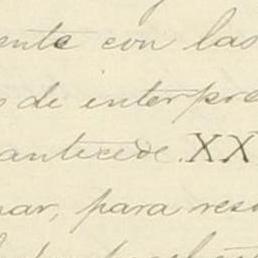 ente con las
s de interpre
antecede. XX
nar, para res